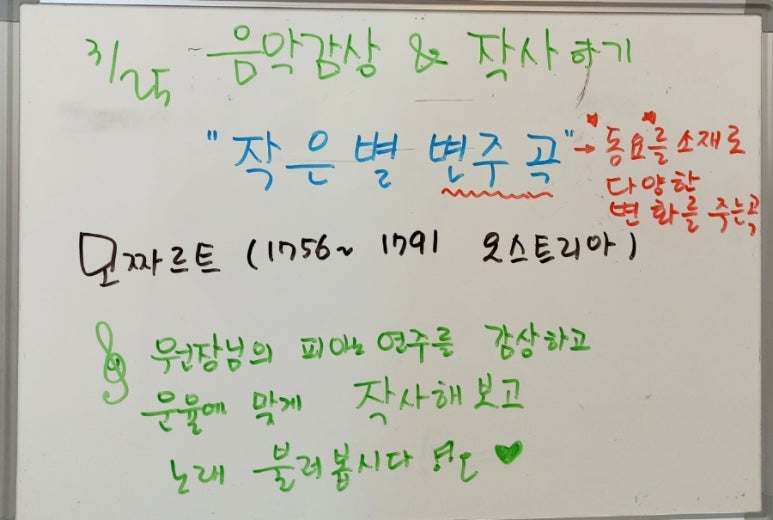 3/25 음악감상 & 작사하기
"작은별 변주곡" → "동요"를 소재로
다양한
변화를 주는곡
모짜르트 (1756~ 1791 오스트리아)
우원장님의 피아노 연주를 감상하고
운율에 맞게 작사해보고
노래 불러봅시다